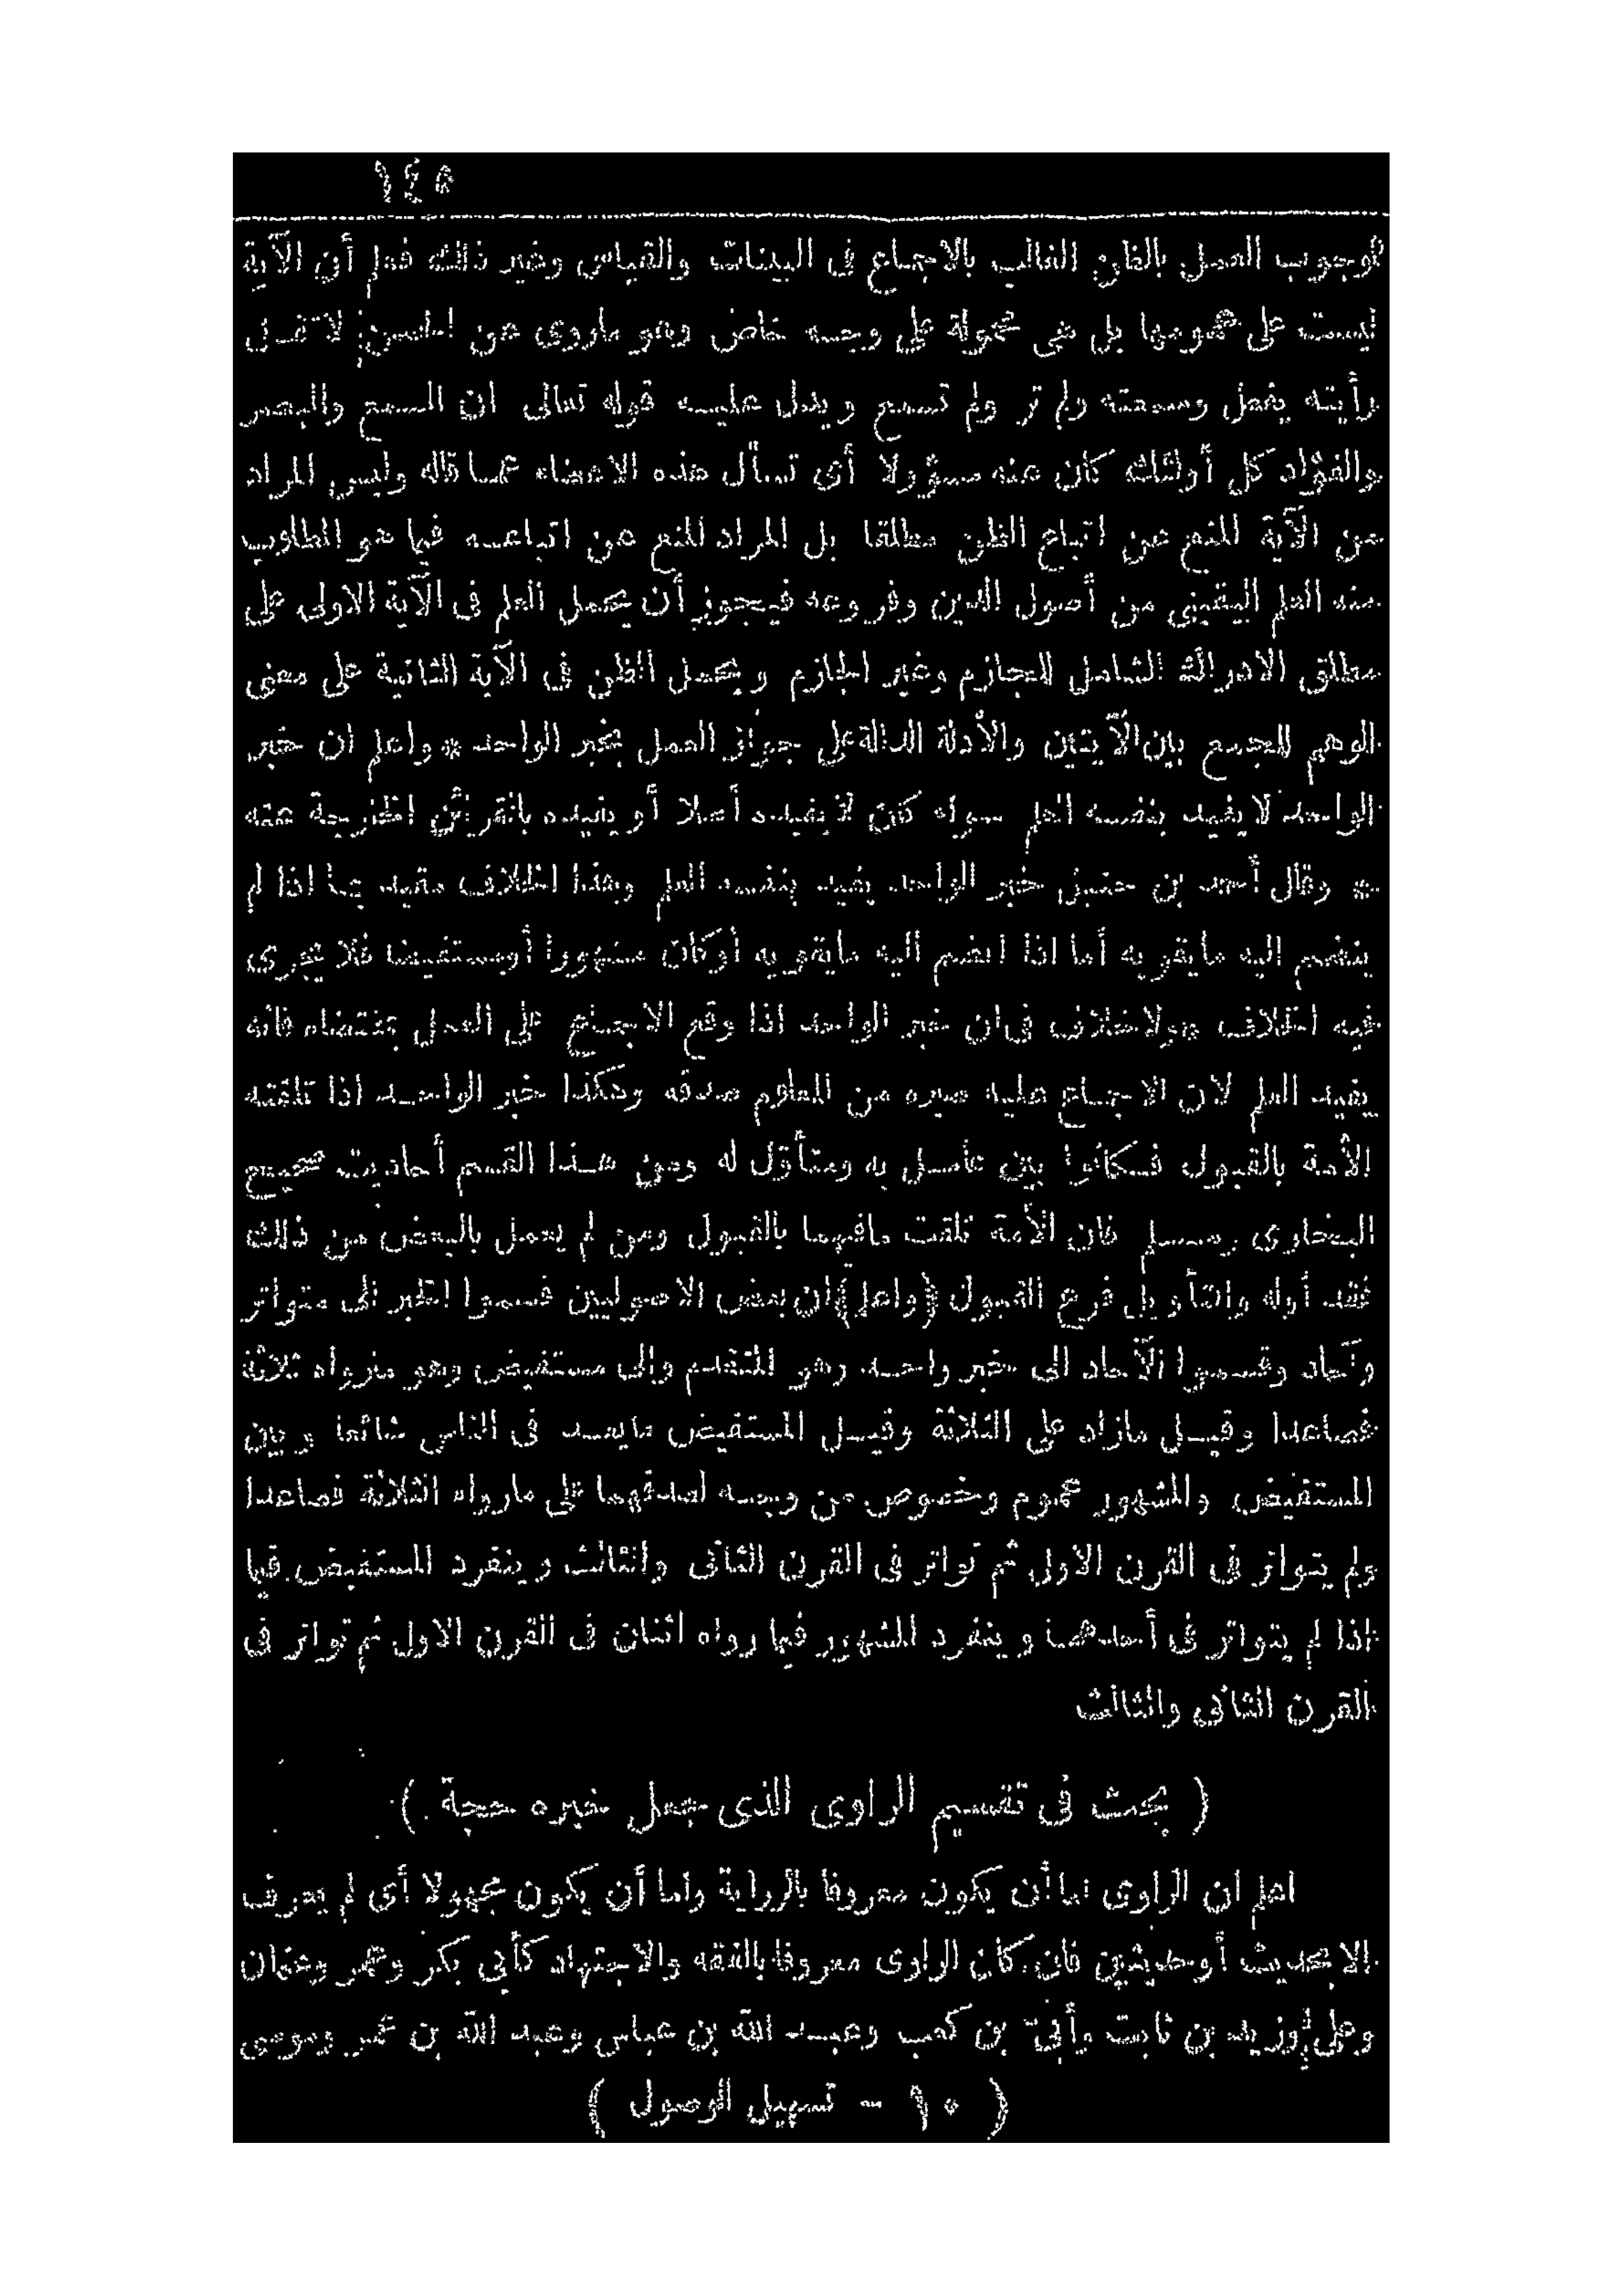 ١٤٥
لوجوب العمل بالظن الغالب بالاجماع فى البينات والقياس وغير ذلك فعلم أن الآية
ليست على عمومها بل هى محمولة على وجه خاص وهو ماروى عن الحسن لا تقل
رأيته يفعل وسمعته ولم تر ولم تسمع ويدل عليه قوله تعالى ان السمع والبصر
والفؤاد كل أولئك كان عنه مسؤولا أى تسأل هذه الاعضاء عما قاله وليس المراد
من الآية المنع عن اتباع الظن مطلقا بل المراد المنع عن اتباعه فيما هو المطلوب
منه العلم اليقينى من أصول الدين وفروعه فيجوز أن يحمل العلم فى الآية الاولى على
مطلق الادراك الشامل للجازم وغير الجازم ويحمل الظن فى الآية الثانية على معنى
الوهم للجمع بين الآيتين والأدلة الدالة على جواز العمل بخبر الواحد * واعلم ان خبر
الواحد لا يفيد بنفسه العلم سواء كان لا يفيده أصلا أو يفيده بالقرائن الخارجة عنه
* وقال أحمد بن حنبل خبر الواحد يفيد بنفسه العلم وهذا الخلاف مقيد بما اذا لم
ينضم اليه ما يقويه أما اذا انضم اليه ما يقويه أو كان مشهورا أو مستفيضا فلا يجرى
فيه الخلاف * ولا خلاف فى ان خبر الواحد اذا وقع الاجماع على العمل بمقتضاه فانه
يفيد العلم لان الاجماع عليه صيره من المعلوم صدقه وهكذا خبر الواحد اذا تلقته
الأمة بالقبول فكانوا بين عامل به ومتأول له ومن هذا القسم أحاديث صحيح
البخارى ومسلم فان الأمة تلقت ما فيهما بالقبول ومن لم يعمل بالبعض من ذلك
فقد أوله والتأويل فرع القبول (واعلم) ان بعض الاصوليين قسموا الخبر الى متواتر
وآحاد وقسموا الآحاد الى خبر واحد وهو المتقدم والى مستفيض وهو مارواه ثلاثة
فصاعدا وقيل مازاد على الثلاثة وقيل المستفيض ما يعد فى الناس شائعا وبين
المستفيض والمشهور عموم وخصوص من وجه لصدقهما على مارواه الثلاثة فصاعدا
ولم يتواتر فى القرن الاول ثم تواتر فى القرن الثانى والثالث وينفرد المستفيض فيما
اذا لم يتواتر فى أحدهما وينفرد المشهور فيما رواه اثنان فى القرن الاول ثم تواتر فى
القرن الثانى والثالث
( بحث فى تقسيم الراوى الذى جعل خبره حجة )
اعلم ان الراوى اما أن يكون معروفا بالرواية واما أن يكون مجهولا أى لم يعرف
الا بحديث أو حديثين فان كان الراوى معروفا بالفقه والاجتهاد كأبى بكر وعمر وعثمان
وعلى وزيد بن ثابت وأبىّ بن كعب وعبد الله بن عباس وعبد الله بن عمر وموسى
( ١٠ - تسهيل الوصول )